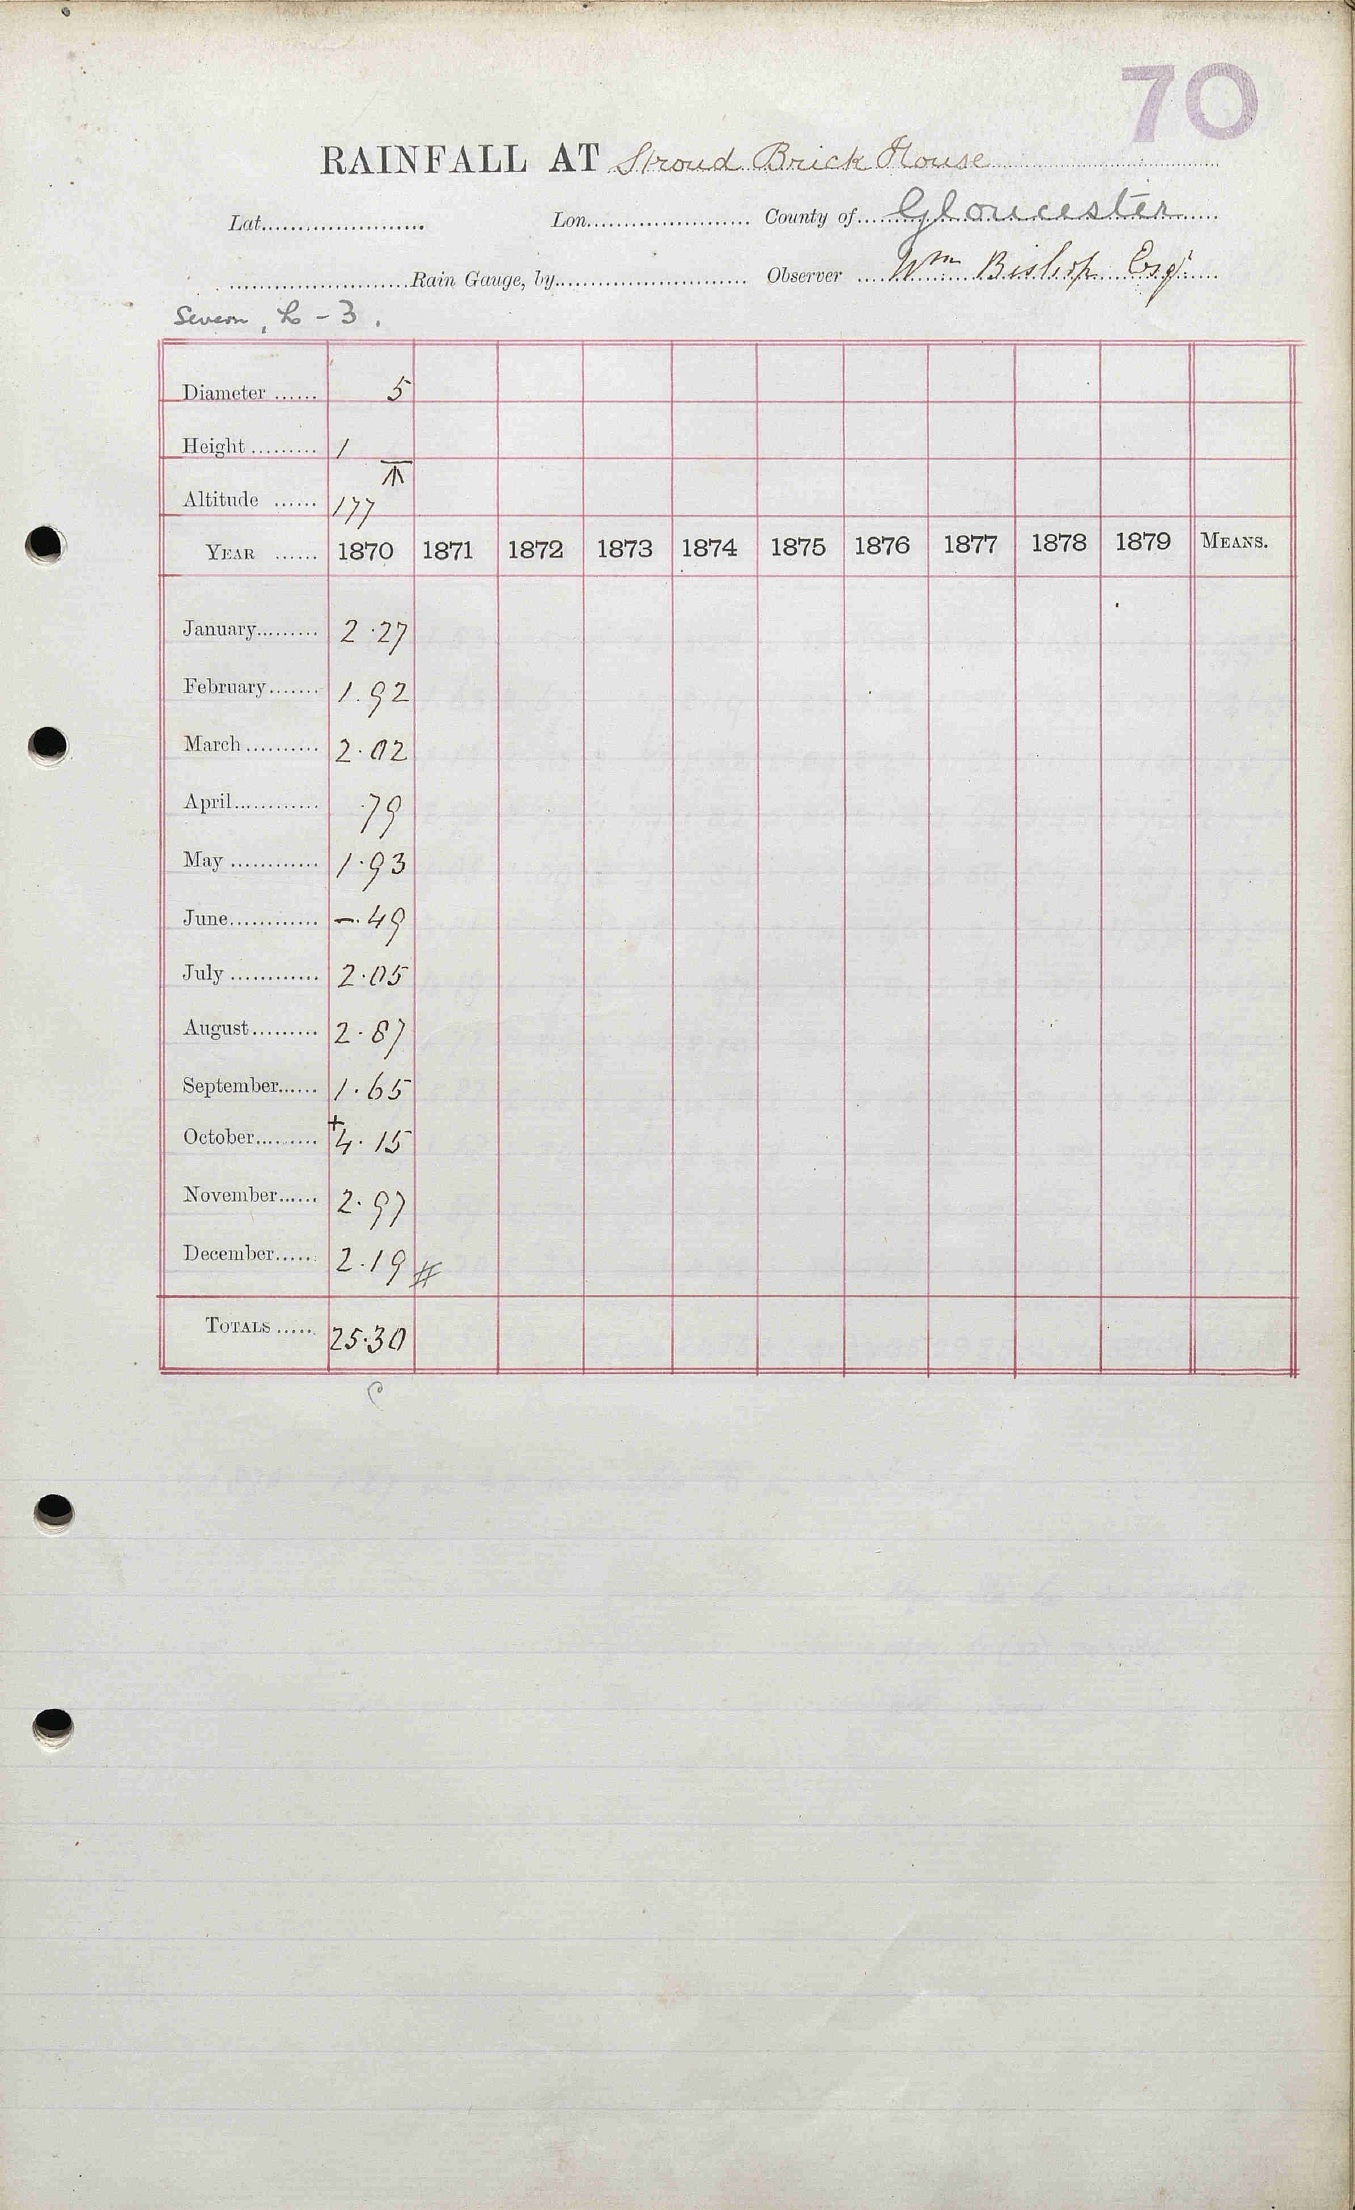 70
RAINFALL AT Stroud Brick House
Lat. Lon. County of Gloucester
Rain Gauge, by Observer Wm Bishop Esqr
Severn, L - 3.
Diameter ...... 5
Height ......... 1
Altitude ...... 177
YEAR ...... 1870 1871 1872 1873 1874 1875 1876 1877 1878 1879 MEANS.
January......... 2.27
February....... 1.92
March .......... 2.02
April............ .79
May ............ 1.93
June............ -.49
July ............ 2.05
August......... 2.87
September...... 1.65
October......... +4.15
November...... 2.97
December..... 2.19 #
TOTALS ..... 25.30
C